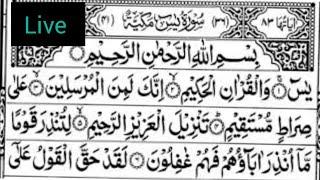 Live
اٰیَاتُهَا ٨٣ (٣٦) سُوْرَةُ یٰسٓ مَكِّیَّةٌ (٤١)
بِسْمِ اللّٰهِ الرَّحْمٰنِ الرَّحِیْمِ
یٰسٓ ۚ وَالْقُرْاٰنِ الْحَكِیْمِ ۙ اِنَّكَ لَمِنَ الْمُرْسَلِیْنَ ۙ عَلٰی
صِرَاطٍ مُّسْتَقِیْمٍ ؕ تَنْزِیْلَ الْعَزِیْزِ الرَّحِیْمِ ۙ لِتُنْذِرَ قَوْمًا
مَّاۤ اُنْذِرَ اٰبَآؤُهُمْ فَهُمْ غٰفِلُوْنَ لَقَدْ حَقَّ الْقَوْلُ عَلٰۤی